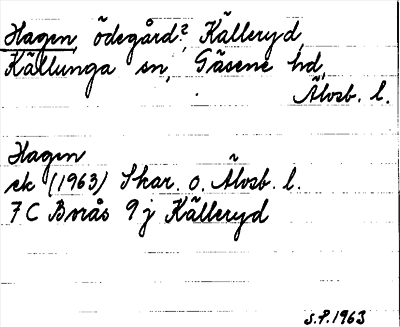 Hagen, ödegård?, Källeryd,
Källunga sn, Gäsene hd,
Älvsb. l.
Hagen
ek (1963) Skar. o. Älvsb. l.
7 C Borås 9 j Källeryd
S.P. 1963